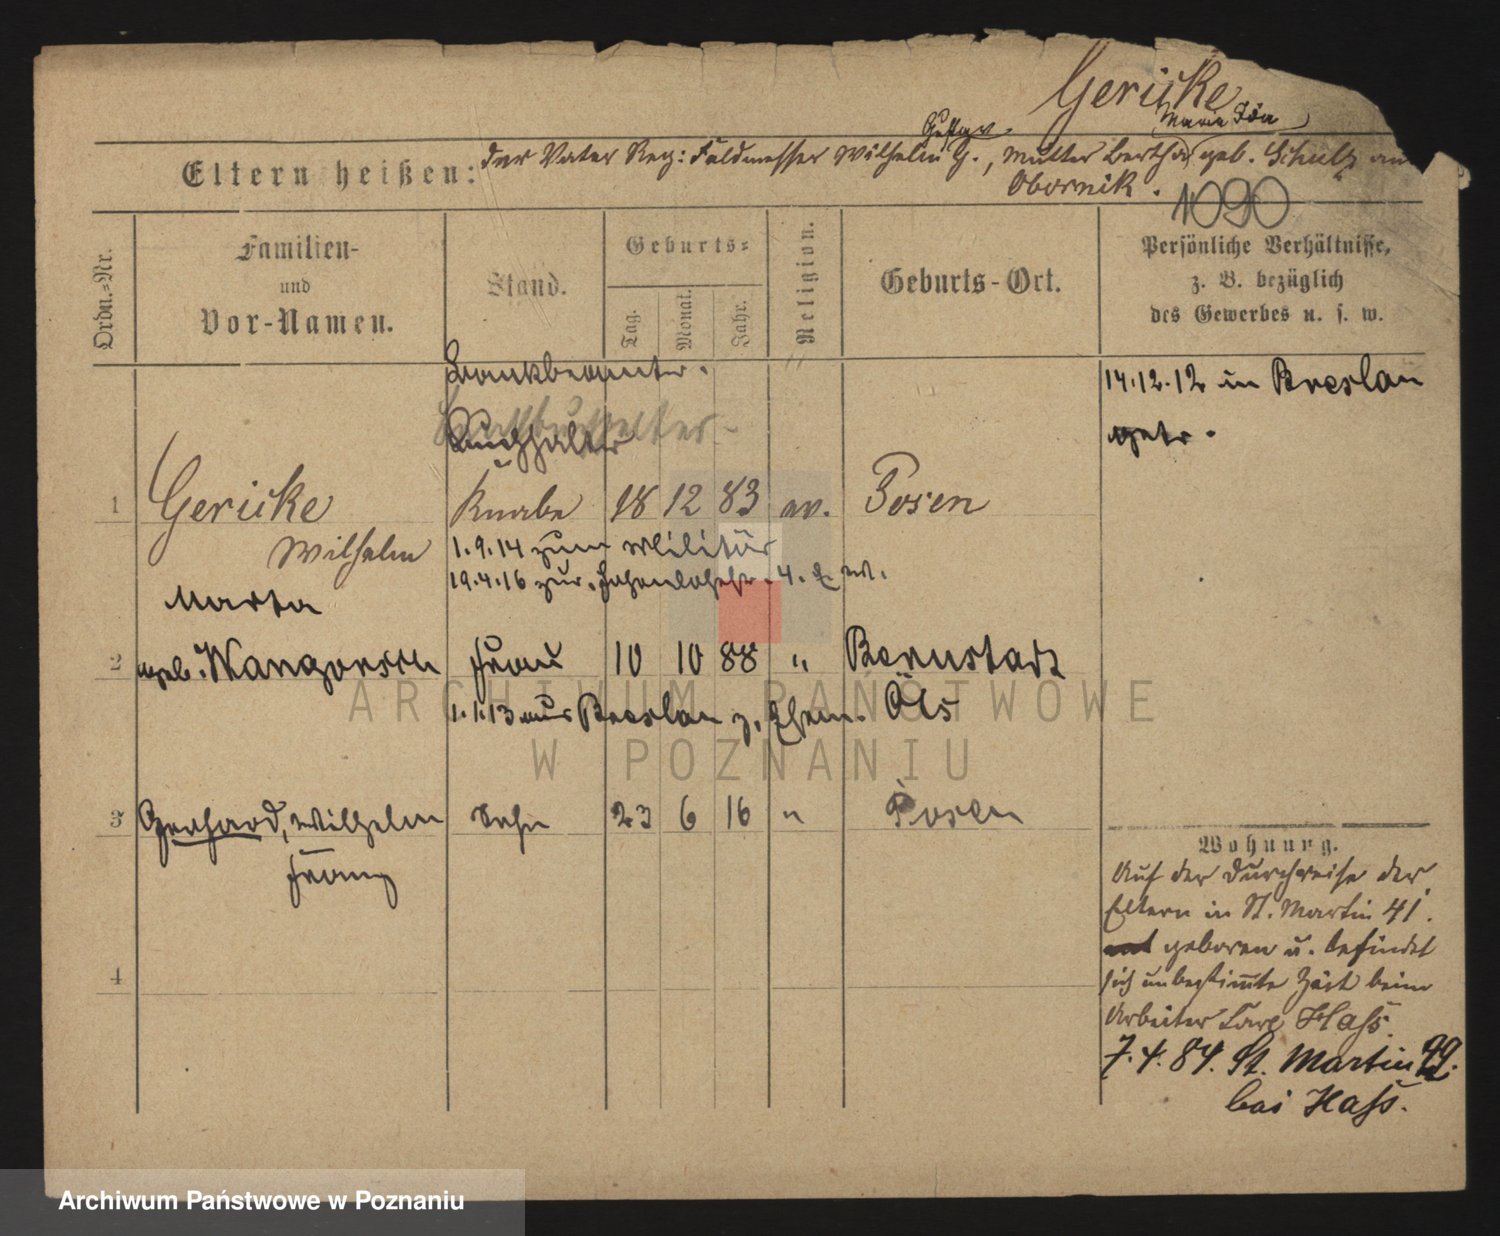 Gericke
Gustav
Maria Ida
Eltern heißen: der Vater Reg: Feldmesser Wilhelm G., Mutter Bertha geb. Schulz aus
Obornik.
1090
Ordn.-Nr.
Familien-
und
Vor-Namen.
Stand.
Geburts-
Tag.
Monat.
Jahr.
Religion.
Geburts-Ort.
Persönliche Verhältnisse,
z. B. bezüglich
des Gewerbes u. s. w.
Bankbeamter.
14.12.12 in Breslau
getr.
Buchhalter
1 Gericke Knabe 18 12 83 ev. Posen
Wilhelm 1.9.14 zum Militär
19.4.16 zur
Marta
2 geb. Frau 10 10 88 " Bernstadt
1.1.13 aus Breslau z. Ehem. Öls
3 Gerhard, Wilhelm Sohn 23 6 16 " Posen
Franz
4
Wohnung.
Auf der Durchreise der
Eltern in St. Martin 41.
geboren u. befindet
sich unbestimmte Zeit beim
Arbeiter Carl Hass.
7.4.84. St. Martin
bei Hass.
ARCHIWUM PAŃSTWOWE
W POZNANIU
Archiwum Państwowe w Poznaniu